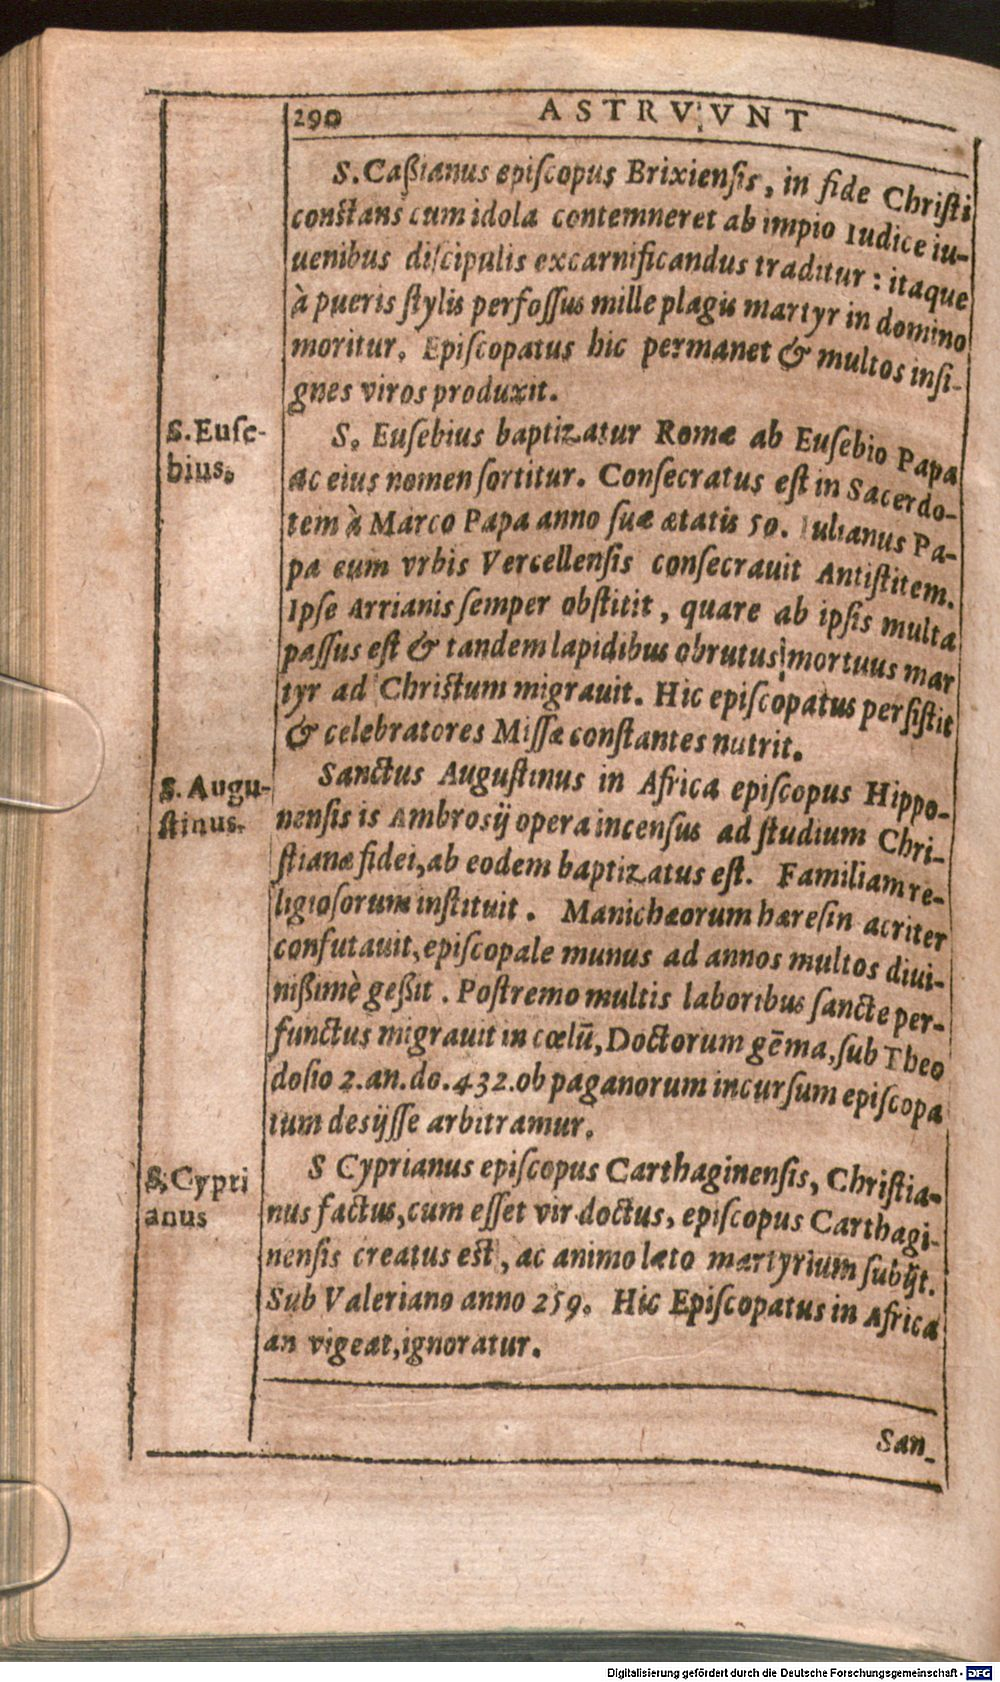 290 ASTRVVNT
S. Caßianus epiſcopus Brixienſis, in fide Chriſti
conſtans cum idola contemneret ab impio Iudice iu-
uenibus diſcipulis excarnificandus traditur: itaque
à pueris ſtylis perfoſſus mille plagis martyr in domino
moritur. Epiſcopatus hic permanet & multos inſi-
gnes viros produxit.
S. Euſe-
bius.
S. Euſebius baptizatur Romæ ab Euſebio Papa
ac eius nomen ſortitur. Conſecratus eſt in Sacerdo-
tem à Marco Papa anno ſuæ ætatis 50. Iulianus Pa-
pa eum vrbis Vercellenſis conſecrauit Antiſtitem.
Ipſe Arrianis ſemper obſtitit, quare ab ipſis multa
paſſus eſt & tandem lapidibus obrutus mortuus mar
tyr ad Chriſtum migrauit. Hic epiſcopatus perſiſtit
& celebratores Miſſæ conſtantes nutrit.
S. Augu-
ſtinus.
Sanctus Auguſtinus in Africa epiſcopus Hippo-
nenſis is Ambroſij opera incenſus ad ſtudium Chri-
ſtianæ fidei, ab eodem baptizatus eſt. Familiam re-
ligioſorum inſtituit. Manichæorum hæreſin acriter
confutauit, epiſcopale munus ad annos multos diui-
nißimè geßit. Poſtremo multis laboribus ſancte per-
functus migrauit in cœlū, Doctorum gēma, ſub Theo
doſio 2. an. do. 432. ob paganorum incurſum epiſcopa
tum desijſſe arbitramur.
S. Cypri
anus
S Cyprianus epiſcopus Carthaginenſis, Chriſtia-
nus factus, cum eſſet vir doctus, epiſcopus Carthagi-
nenſis creatus eſt, ac animo læto martyrium ſubijt.
Sub Valeriano anno 259. Hic Epiſcopatus in Africa
an vigeat, ignoratur.
San-
Digitalisierung gefördert durch die Deutsche Forschungsgemeinschaft - DFG